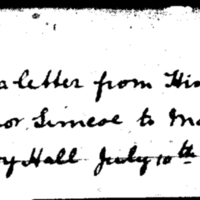 a letter from His
nor Simcoe to Ma
ry Hall July 10th